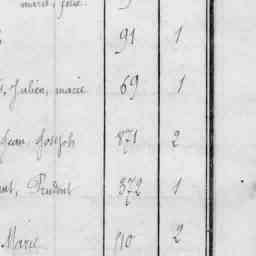 marie, julie.
91 1
, Julien, marie 69 1
Jean, Joseph 871 2
Prudent 372 1
Marie 910 2